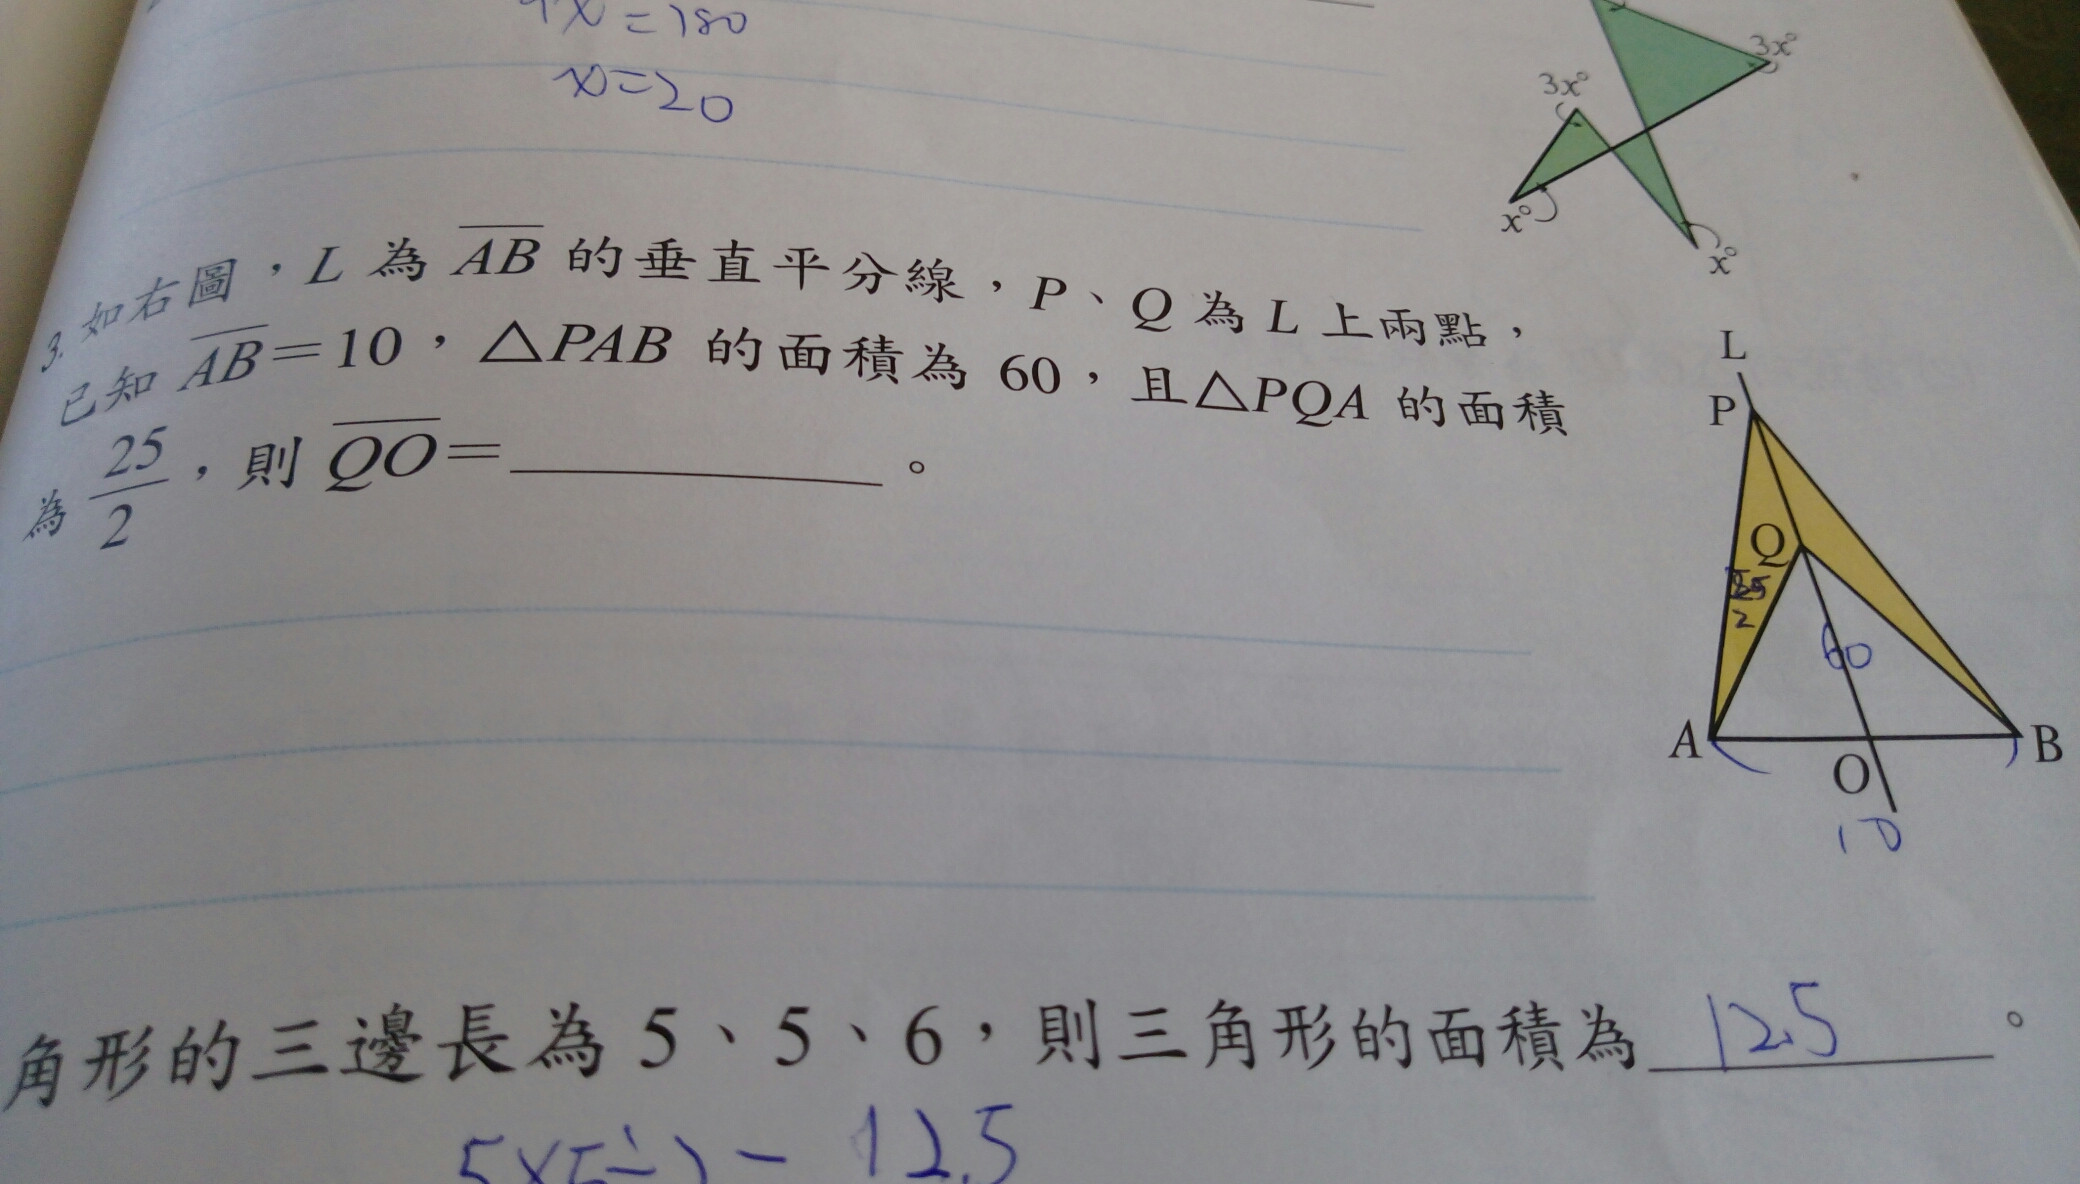 4x=180
x=20
3x°
3x°
x°
x°
3. 如右圖，L 為 AB 的垂直平分線，P、Q 為 L 上兩點，
已知 AB=10，△PAB 的面積為 60，且△PQA 的面積
為 25/2，則 QO=__________。
L
P
Q
25/2
60
A
O
B
10
角形的三邊長為 5、5、6，則三角形的面積為 12.5 。
5×5÷2=12.5